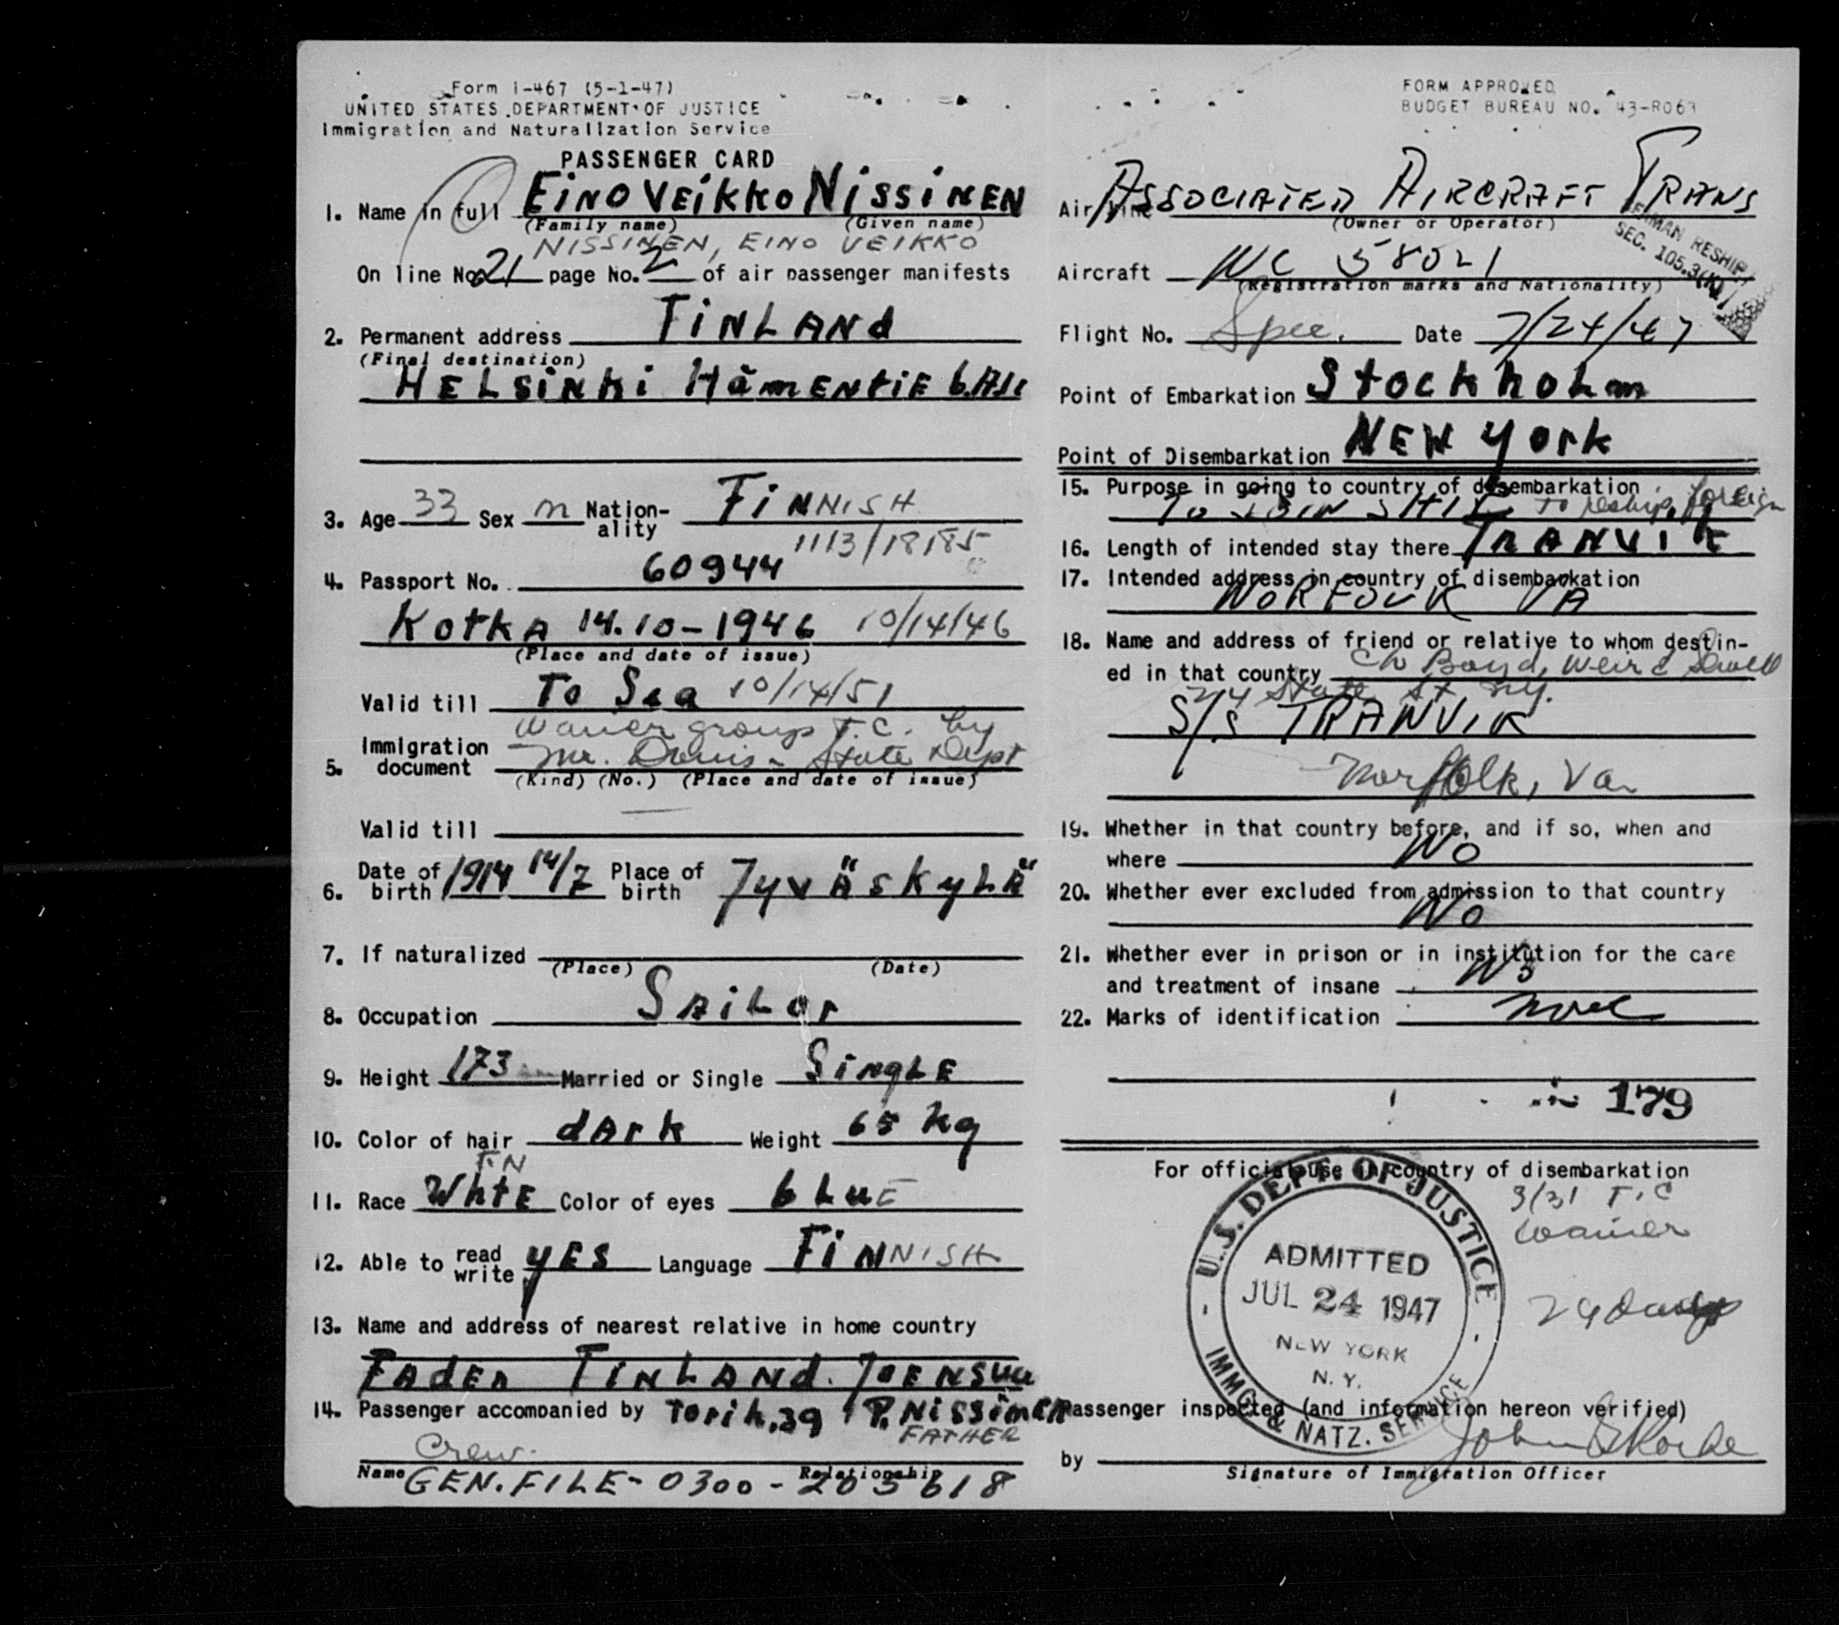 Form I-467 (5-1-47)
UNITED STATES DEPARTMENT OF JUSTICE
Immigration and Naturalization Service
PASSENGER CARD
1. Name in full EiNO VEiKKO NISSINEN
(Family name) (Given name)
NISSINEN, EINO VEIKKO
On line No. 21 page No. 2 of air passenger manifests
2. Permanent address FiNLANd
(Final destination)
HELSiNKi HämENtiE
3. Age 33 Sex m Nation-ality FiNNISH
1113/18185
4. Passport No. 60944
KotKA 14.10-1946 10/14/46
(Place and date of issue)
Valid till To Sea 10/14/51
Waiver group T.C. by
5. Immigration document Mr. Davis - State Dept
(Kind) (No.) (Place and date of issue)
Valid till
6. Date of birth 1914 14/7 Place of birth JyväsKyLä
7. If naturalized
(Place) (Date)
8. Occupation SAiLor
9. Height 173 Married or Single SiNgLE
10. Color of hair dArk Weight 65 kg
FiN
11. Race WhtE Color of eyes bLuE
12. Able to read write yES Language FiNNISH
13. Name and address of nearest relative in home country
FAdER FiNLANd. JOENSuu
14. Passenger accompanied by Torik. 39 P. NiSSiNEN
FATHER
Crew.
Name Relationship
GEN. FILE - 0300 - 205618
FORM APPROVED
BUDGET BUREAU NO. 43-R063
Air Line ASSOCIATED AIRCRAFT TRANS
(Owner or Operator)
RESHIP
SEC. 105.3(K)
Aircraft NC 58021
(Registration marks and Nationality)
Flight No. Spec. Date 7/24/47
Point of Embarkation StockhoLm
Point of Disembarkation NEW York
15. Purpose in going to country of disembarkation
To JOIN SHIP to reship foreign
16. Length of intended stay there TRANVIK
17. Intended address in country of disembarkation
NORFOLK VA
18. Name and address of friend or relative to whom destin-
ed in that country c/o Boyd, Weir & Sewell
24 State St NY.
S/S TRANVIK
Norfolk, Va.
19. Whether in that country before, and if so, when and
where No
20. Whether ever excluded from admission to that country
No
21. Whether ever in prison or in institution for the care
and treatment of insane No
22. Marks of identification none
179
For official use in country of disembarkation
3/31 T.C
Waiver
29 days
U.S. DEPT. OF JUSTICE
ADMITTED
JUL 24 1947
NEW YORK
N. Y.
IMMG. & NATZ. SERVICE
Passenger inspected (and information hereon verified)
by John
Signature of Immigration Officer